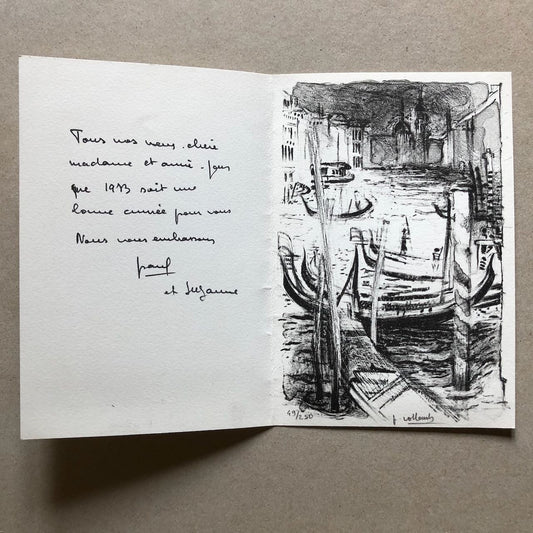 Tous nos vœux. chère
madame et amie. pour
que 1973 soit une
bonne année pour vous
Nous vous embrassons
Paul
et Suzanne
49/250